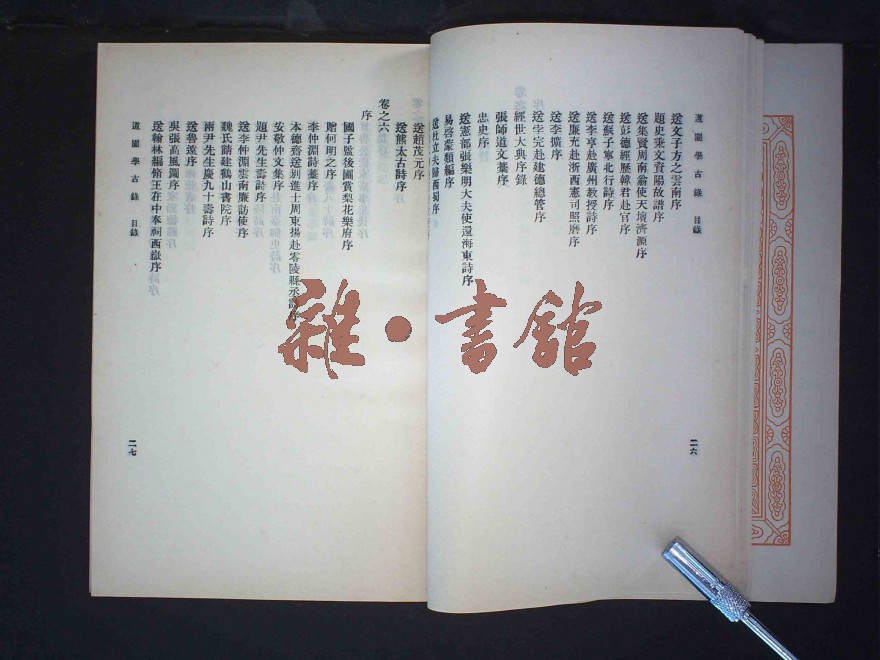 道園學古錄 目錄
送文子方之雲南序
題史秉文資陽故譜序
送集賢周南翁使天壇濟源序
送彭德經歷韓君赴官序
送蘇子寧北行詩序
送李亨赴廣州教授詩序
送廉充赴浙西憲司照磨序
送李擴序
送李完赴建德總管序
經世大典序錄
張師道文藁序
忠史序
送憲部張樂明大夫使還海東詩序
易啓蒙類編序
送杜立夫歸西蜀序
二六
送趙茂元序
送熊太古詩序
卷之六
序
國子監後圃賞梨花樂府序
贈何明之序
李仲淵詩藁序
本德齋送別進士周東揚赴零陵縣丞詩序
安敬仲文集序
題尹先生壽詩序
送李仲淵雲南廉訪使序
魏氏請建鶴山書院序
兩尹先生慶九十壽詩序
送魯遠序
吳張高風圖序
送翰林編脩王在中奉祠西嶽序
道園學古錄 目錄
二七
雜·書館